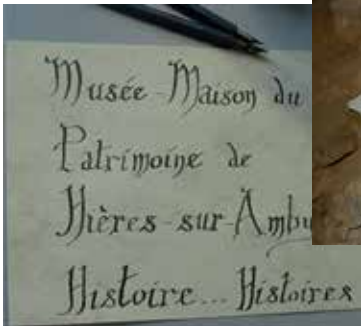 Musée Maison du
Patrimoine de
Hières-sur-Ambu
Histoire... Histoires